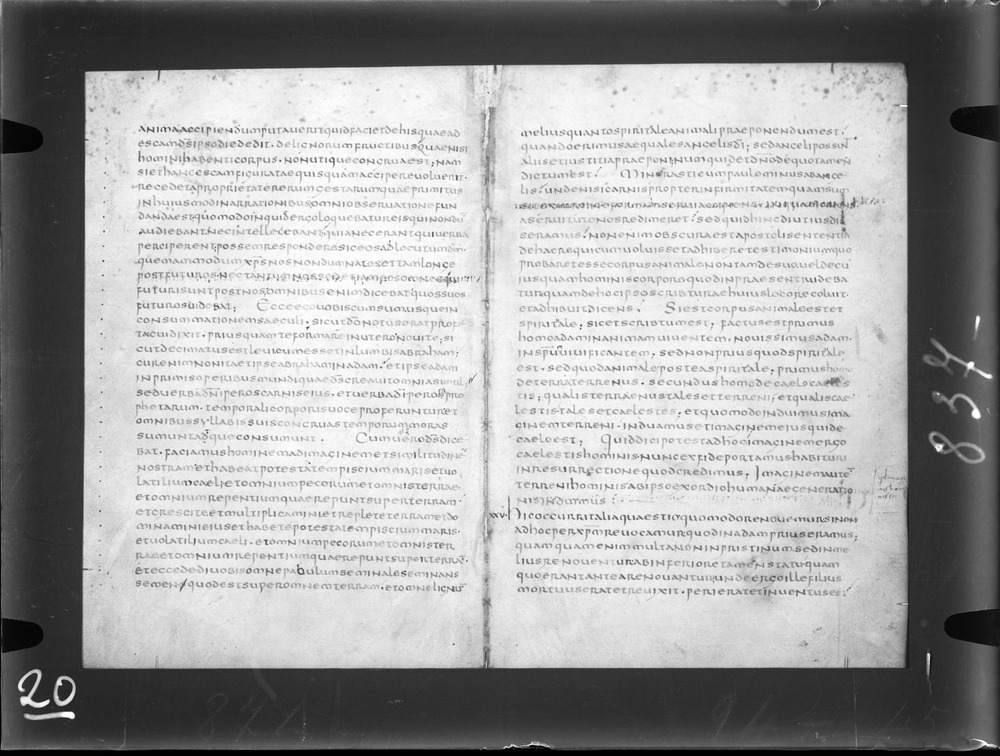 animaaccipiendumputauerit quidfacietdehisquaead
escamdsipsodiededit · delignorumfructibusquaenisi
hominihabenticorpus · nonutiquecongruaest; nam
siethancescamfigurataequisquamaccipereuoluerit ·
recedetaproprietatererumgestarumquaeprimitus
inhuiusmodinarrationibusomniobseruationefun
dandaest quomodoinquitergoloquebatureisquinondu
audiebantnecintellegebant quianecerantquiuerba
perciperent possemrespondere sic eosadlocutumdm ·
quemammodumxps nosnondumnatos ettamlonge
futurisuntpostnos omnibusenimdicebatquossuos
futurosuidebat; Ecceegouobiscumsumusquein
consummationemsaeculi · sicutdonotuseratprofe
tacuidixit · priusquamteformareinuteronouite; si
cutdecimatusestleuicumessetinlumbisabraham;
curenimnonitaetipseabrahaminadam · etipseadam
inprimisoperibusmundiquaedscreauitomniasimul;
seduerbadniperoscarniseius · etuerbadiperospro
phetarum · temporalicorporisuoceproferuntur et
omnibussyllabissuiscongruastemporummoras
sumuntadqueconsumunt · Cumuerodsdice
bat · faciamushominemadimaginemetsimilitudine
nostram ethabeatpotestatempisciummarisetuo
latiliumcaeli etomniumpecorumetomnisterrae
etomniumrepentiumquaerepuntsuperterram
etcresciteetmultiplicaminietrepleteterrametdo
minaminieiusethabetepotestatempisciummaris ·
etuolatiliumcaeli · etomniumpecorumetomnister
raeetomniumrepentiumquaerepuntsuperterra ·
etecce dediuobisomnepabulumseminaleseminans
semen quodestsuperomnemterram · etomnelignu
meliusquantospiritaleanimalipraeponendumest ·
quandoerimusaequalesangelisdi; sedangelipossunt
aliisetiustitiapraeponi numquidetdnodequotamen
dictumest · Minorasticumpaulominusabange
lis · undenisicarnispropterinfirmitatemquamsum
aseruitutenosredimeret · sedquidhincdiutiusdis
seramus · nonenimobscuraestapostolisententia
dehacrequicumuoluissetadhiberetestimoniumquo
probaretessecorpusanimale nontamdesuoueldecu
iusquamhominiscorporequodinpraesentiuideba
tur quamdehocipsoscripturaehuiuslocorecoluit ·
etadhibuitdicens · Siestcorpusanimaleestet
spiritale; sicetscribtumest; factusestprimus
homoadaminanimamuiuentem · nouissimusadam ·
inspmuiuificantem; sednonpriusquodspiritale
est · sedquodanimale posteaspiritale; primushomo
deterraterrenus · secundushomodecaelocaeles
tis; qualisterraenustalesetterreni; etqualiscae
lestistalesetcaelestes · etquomodoinduimusima
ginemterreni · induamusetimaginemeiusquide
caeloest; Quiddicipotestadhoc imaginemergo
caelestishominisnuncexfideportamushabituri
inresurrectionequodcredimus; Imaginemaute
terrenihominisabipsoexordiohumanaegeneratio
nisinduimus :
xxv · Hicoccurritaliaquaestio quomodorenouemursinon
adhocperxpmreuocamurquodinadampriuseramus;
quamquamenimmultanoninpristinumsedinme
liusrenouentur abinferioretamenstatuquam
quoerantantearenouantur undeergoillefilius
mortuuseratetreuixit · perieratetinuentusest
20
837